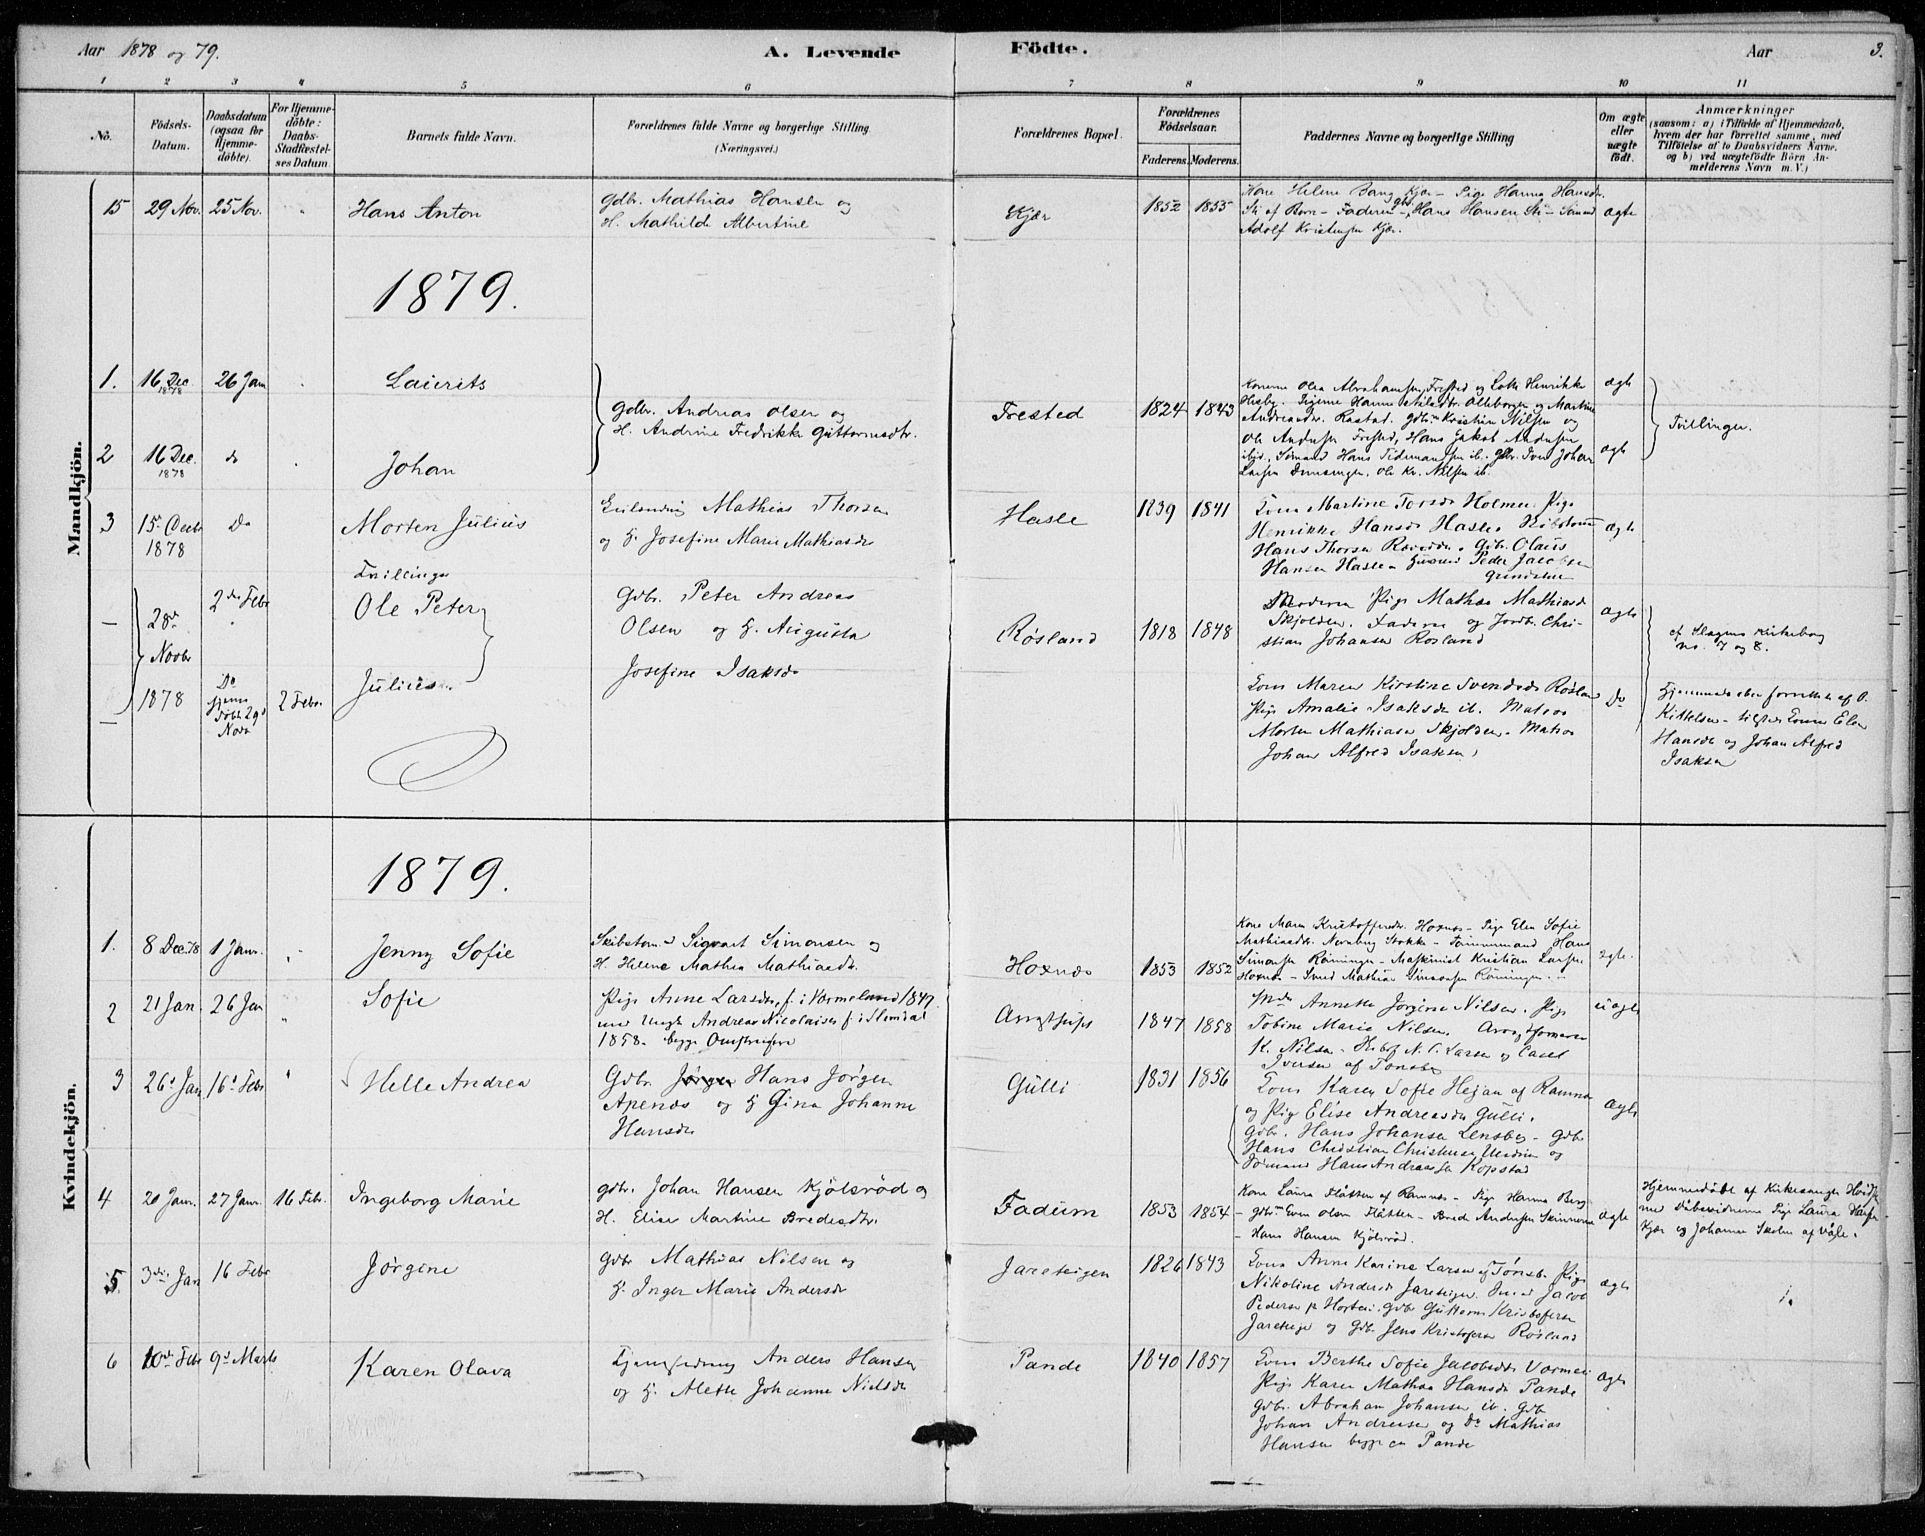 Aar 1878 og 79.
A. Levende
Födte.
Aar
3.
1 2 3 4 5 6 7 8 9 10 11
No.
Födsels-
Datum.
Daabsdatum
(ogsaa for
Hjemme-
döbte).
For Hjemme-
döbte:
Daabs-
Stadfæstel-
ses Datum.
Barnets fulde Navn.
Forældrenes fulde Navne og borgerlige Stilling
(Næringsvei.)
Forældrenes Bopæl.
Forældrenes
Födselsaar.
Faderens. Moderens.
Faddernes Navne og borgerlige Stilling
Om ægte
eller
uægte
födt.
Anmærkninger
(saasom: a) i Tilfælde af Hjemmedaab,
hvem der har forrettet samme, med
Tilföielse af to Daabsvidners Navne,
og b) ved uægtefödte Börn An-
melderens Navn m. V.)
Mandkjön.
15 29 Nov. 25 Nov. Hans Anton
Gdbr. Mathias Hansen og
H. Mathilde Albertine
Kjær 1852 1855
Kone Helene Bang Kjær - Pige Hanna Hansdr.
Sti af Born - Faderen - gbr. Hans Hansen Sti - Sömand
Adolf Kristensen Kjær.
ægte
1879.
1. 16 Dec. 1878 26 Jan Laurits
Gdbr. Andreas Olsen og
H. Andrine Fredrikke Guttormsdtr.
Frested 1824 1843
ægte
2 16 Dec. 1878 do Johan
ægte
Konerne Olea Abrahamsen Frested og Lotte Henrikke
Andreasdr. Rastad. Gdbr. Kristian Nilsen og
Ole Andersen Frested, Hans Jakob Andersen
ibid. Sömand Hans Tidemansen ib. Gdbr. Iver Johan
Larsen Ole Kr. Nilsen ib.
Tvillinger.
3 15 Decbr 1878 Do Morten Julius
Mathias Thorsen
og H. Josefine Marie Mathiasdr
Hasle 1839 1841
Kone Martine Torsdr Holmen. Pige
Henrikke Hansdr Hasle.
Hans Thorsen Gdbr. Olaus
Hansen Hasle Peder Jacobsen
ægte
Tvillinger
28de Novbr 1878
2den Febr Ole Peter
Gdbr. Peter Andreas
Olsen og H. Augusta
Josefine Isaksdr
Røsland 1818 1848
Moderen Pige Mathea Mathiasdr
Skjolden. Faderen og Jordbr. Chri-
stian Johansen Rosland
ægte
cf. Slagens Kirkebog
no. 7 og 8.
Do hjemme
döbt 29d
Novbr
2 Febr. Julius
Kone Maren Kirstine Svendsdr Røsland
Pige Amalie Isaksdr ib. Matros
Morten Mathiasen Skjolden. Matros
Johan Alfred Isaksen.
Do
Hjemmedaaben forrettet af O.
Kittelsen - Kone Elen
Hansdr og Johan Alfred
Isaksen
Kvindekjön.
1879.
1. 8 Dec. 78 1 Janr. Jenny Sofie
Skibstøm. Sigvart Simonsen og
H. Helene Mathea Mathiasdtr.
Hoxnæs 1853 1852
Kone Maren Kristoffersdr. Hoxnæs - Pige Elen Sofie
Mathiasdr. Stokke - Tømmermand Hans
Simonsen Råningen - Maskinist Kristian Larsen
Hoxnæs - Smed Mathias Simonsen Råningen.
ægte.
2 21 Jan. 26 Jan Sofie
Pige Anne Larsdr. f. i Vermeland 1847
med Ungk. Andreas Nicolaisen f. i Slemdal
1858 - begge
1847 1858
Annette Jorgine Nilsen. Pige
Tobine Marie Nilsen.
K. Nilsen - N. C. Larsen og Carl
Iversen af Tønsbg
uægte
3 26d Jan 16d Febr Helle Andrea
Gdbr. Hans Jørgen
Apenæs og H Gina Johanne
Hansdr
Gulli 1831 1856
Kone Karen Sofie Hejan af Ramnæs
og Pige Elise Andreasdr Gulli.
Gdbr. Hans Johansen Lensberg - Gdbr
Hans Christian Christensen og
Sømand Hans Andreassen Kopstad
ægte
4 20 Janr. 27 Janr. 16 Febr. Ingeborg Marie
Gdbr. Johan Hansen Kjölsröd og
H. Elise Martine Bredesdtr.
Fadum 1853 1854
Kone Laura Flåtten af Ramnes - Pige Hanna Berg
- Gdbr. Even Olsen Flåtten - Brede Andersen Skinnerne
- Hans Hansen Kjölsröd.
ægte
Hjemmedöbt af Kirkesanger
med Dåbsvidnerne Pige Laura
Kjær og Johannes Skolen af Våle.
5 3die Jan 16 Febr Jørgine
Gdbr Mathias Nilsen og
H. Inger Marie Andersdr
Jareteigen 1826 1843
Kone Anne Karine Larsen af Tønsb. Pige
Nikoline Andersdr Jareteigen. Smed Jacob
Pedersen pr Horten. Gdbr Guttorm Kristofersen
Jareteigen og Gdbr. Jens Kristofersen Røsland
ægte
6 10de Febr 9d Marts Karen Olava
Anders Hansen
og H. Alette Johanne Nielsdr
Pande 1840 1857
Kone Berthe Sofie Jacobsdr
Pige Karen Mathea Hansdr Pande
Gdbr. Abraham Johansen ib. Gdbr
Johan Andersen og Do Mathias
Hansen begge Pande
ægte